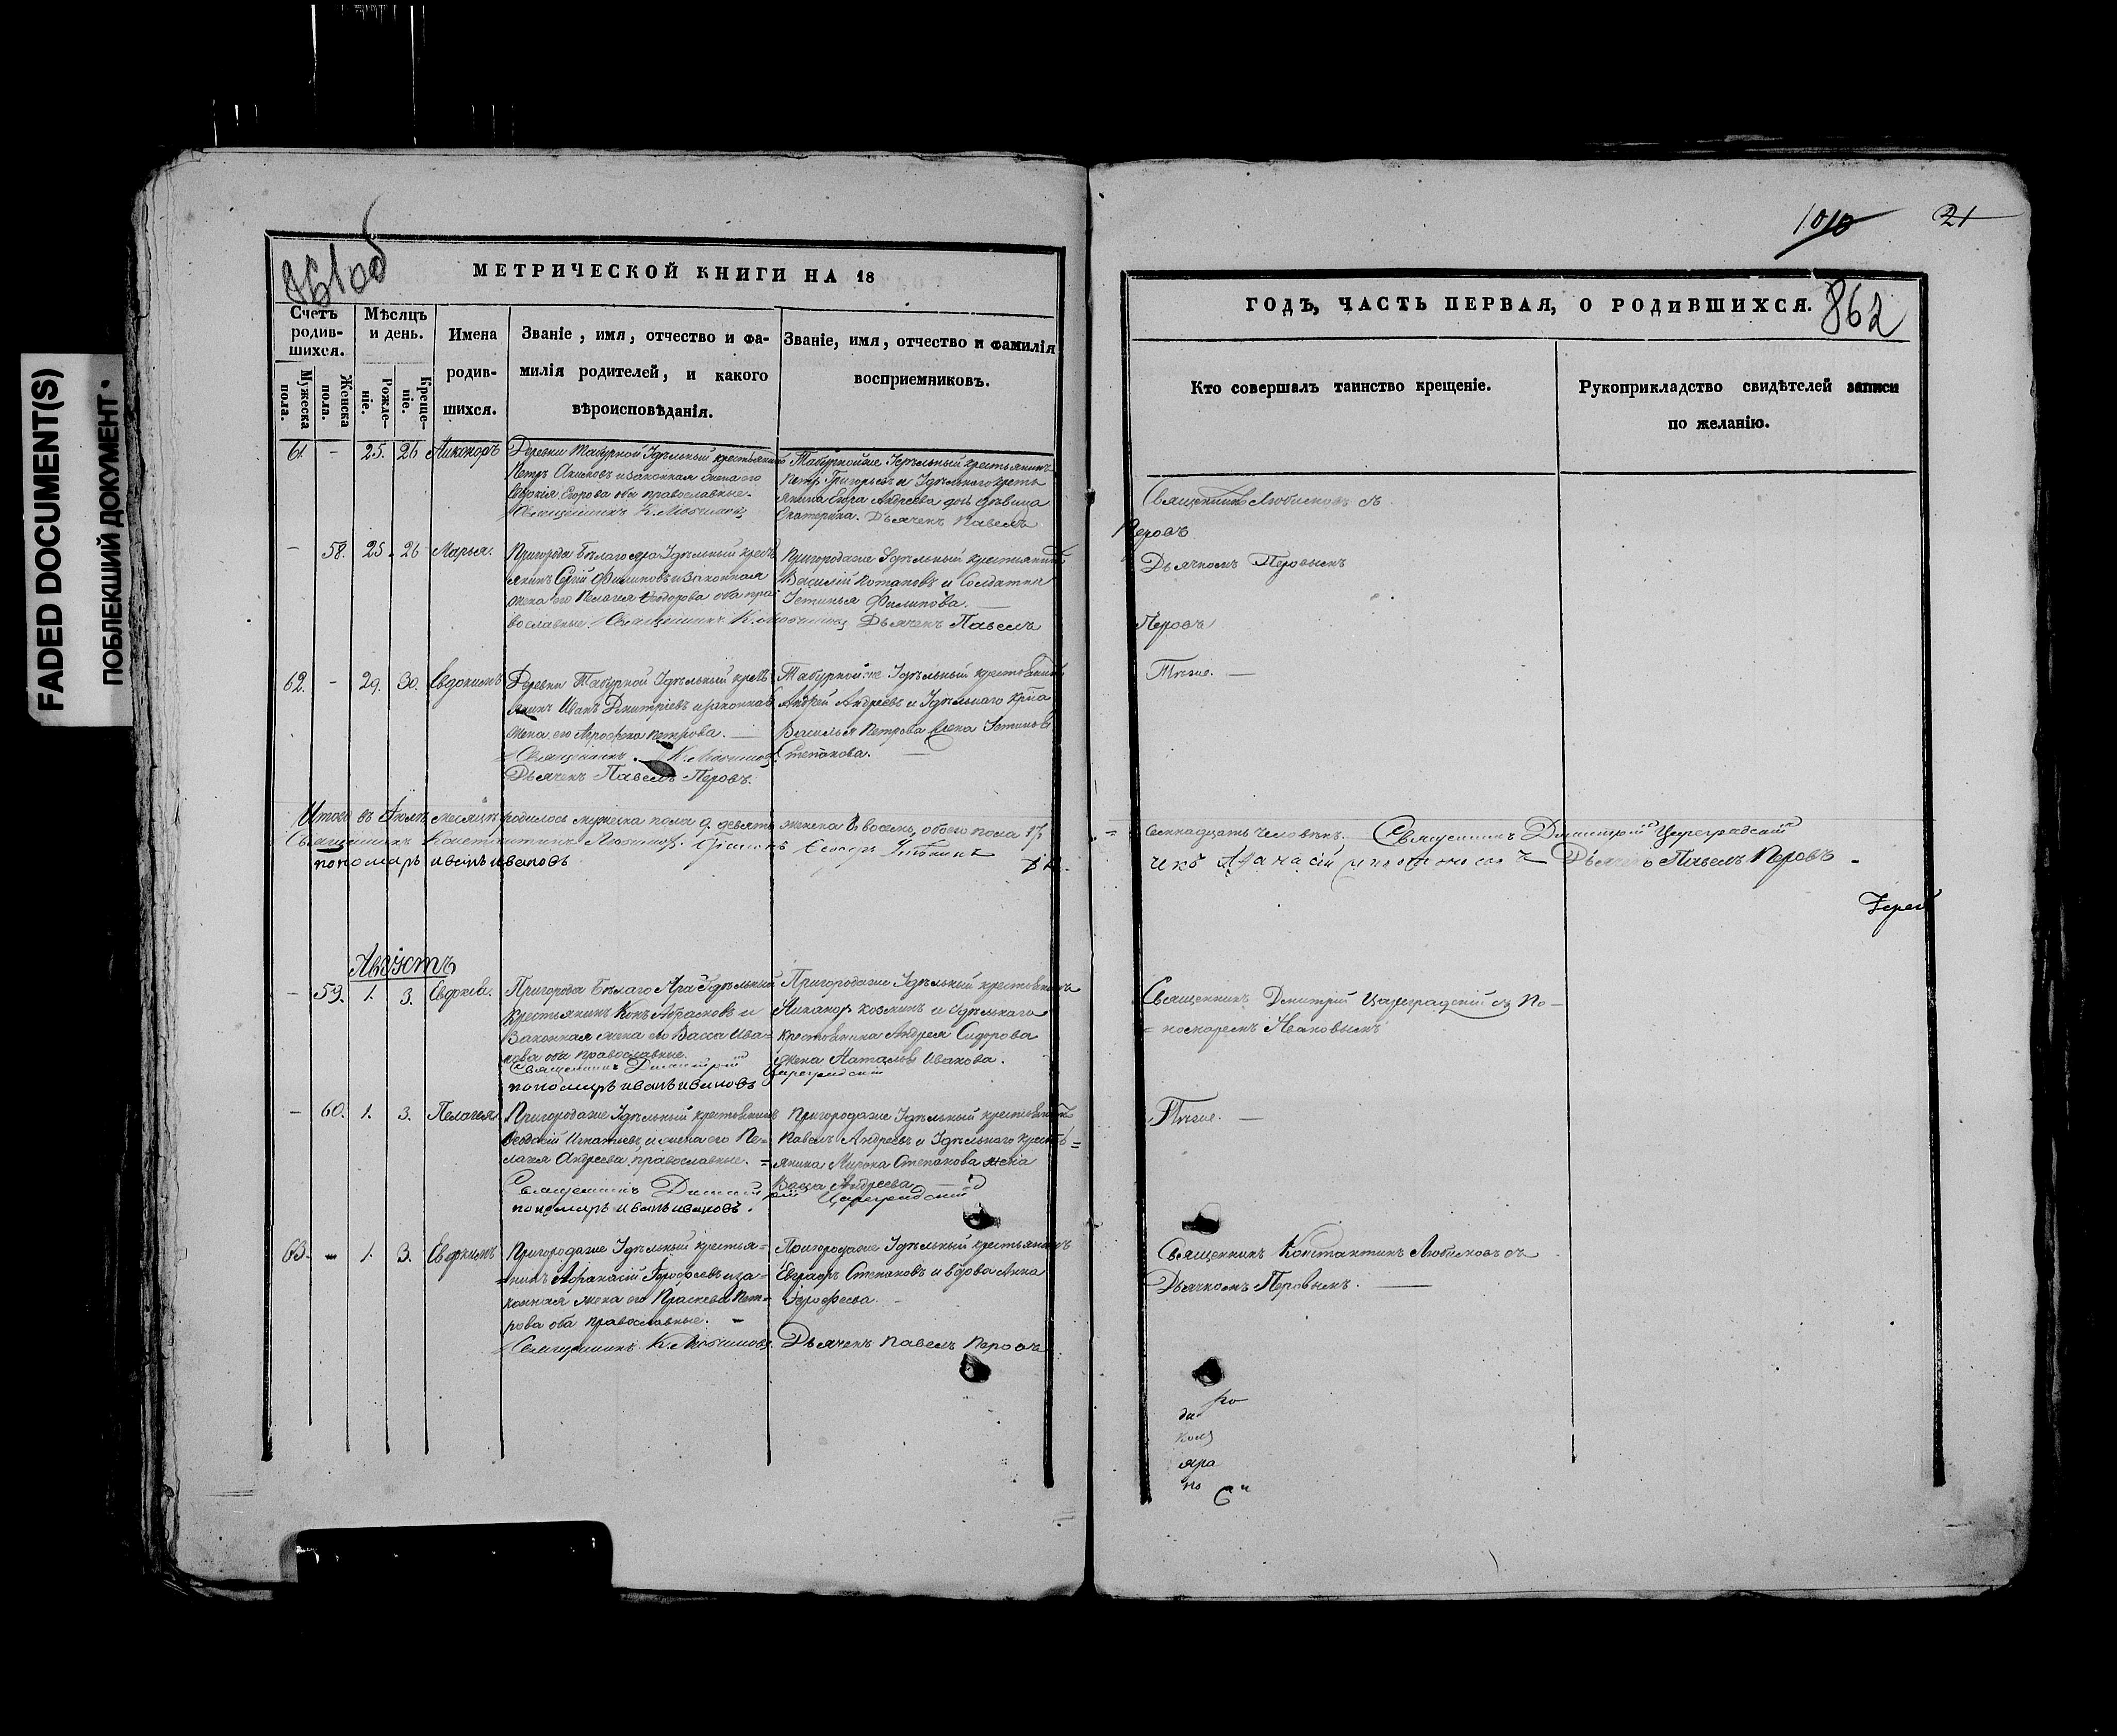 FADED DOCUMENT(S)
ПОБЛЕКШИЙ ДОКУМЕНТ •
861об
МЕТРИЧЕСКОЙ КНИГИ НА 18
Счетъ родив-шихся.
Мужеска пола.
Женска пола.
Мѣсяцъ и день.
Рожде-ніе.
Креще-ніе.
Имена родив-шихся.
Званіе, имя, отчество и фа-
милія родителей, и какого
вѣроисповѣданія.
Званіе, имя, отчество и фамилія
восприемниковъ.
61. - 25. 26 Никоноръ
Деревни Табурной Удѣльный крестьянинъ
Петръ Акимовъ и законная жена его
Егорова оба православные.
Священникъ К. Любимовъ
Табурной же Удѣльный крестьянинъ
Петръ Григорьевъ и Удѣльнаго кресть
янина Андреева дѣвица
Екатерина. Дьячекъ Павелъ
- 58. 25. 26 Марья.
Пригорода Бѣлаго яра Удѣльный крес
янинъ Филиповъ и законная
жена его Пелагея Ѳеодорова оба пра
вославные. Священникъ К. Любимовъ
Пригородаже Удѣльный крестьянинъ
Василій Потаповъ и Солдатка
Устинья Филипова.
Дьячекъ Павелъ
62. - 29. 30. Евдокимъ
Деревни Табурной Удѣльный крест
янинъ Иванъ Дмитріевъ и законная
жена его Петрова.
Священникъ К. Любимовъ
Дьячекъ Павелъ Перовъ.
Табурной же Удѣльный крестьянинъ
Андрей Андреевъ и Удѣльнаго
Василья Петрова жена Устинья
Степанова.
Итого въ Іюлѣ мѣсяцѣ родилось мужеска пола 9. девять женска 8 восемь, обоего пола 17
Священникъ Константинъ Любимовъ.
пономарь иванъ ивановъ
Августъ
- 59. 1. 3. Евдокія.
Пригорода Бѣлаго Яра Удѣльный
крестьянинъ Абрамовъ и
Законная жена его Васса Ива=
нова оба православные.
Священникъ Димитрій
пономарь иванъ ивановъ
Пригородаже Удѣльный крестьянинъ
Никаноръ Козминъ и Удѣльнаго
крестьянина Андрея Сидорова
жена Наталья Иванова.
Цареградскій
- 60. 1. 3. Пелагея
Пригородаже Удѣльный крестьянинъ
Игнатьевъ и жена его Пе=
лагея Андреева православные. =
Священникъ Димит
пономарь иванъ ивановъ.
Пригородаже Удѣльный крестьянинъ
Павелъ Андреевъ и Удѣльнаго кресть=
янина Мирона Степанова жена
Васса Андреева
рій Цареградскій
63. - 1. 3. Евдокимъ
Пригородаже Удѣльный крестья=
нинъ Афанасій Ерофеевъ и за=
конная жена его Праскева Пет=
рова оба православные.
Священникъ К. Любимовъ.
Пригородаже Удѣльный крестьянинъ
Евграфъ Степановъ и вдова Анна
Ерофеева.
Дьячекъ Павелъ Перовъ
1010
21
ГОДЪ, ЧАСТЬ ПЕРВАЯ, О РОДИВШИХСЯ.
862
Кто совершалъ таинство крещеніе.
Рукоприкладство свидѣтелей записи
по желанію.
Священникъ Любимовъ съ
Перовъ
Дьячкомъ Перовымъ
Перовъ
Тѣже.
семнадцать человѣкъ. Священникъ Димитрій Цареградскій
Дьячекъ Павелъ Перовъ
Іерей
Священникъ Дмитрій Цареградскій съ По-
= номаремъ Ивановымъ
Тѣже.
Священникъ Константинъ Любимовъ съ
Дьячкомъ Перовымъ.
ро
да
яра
по